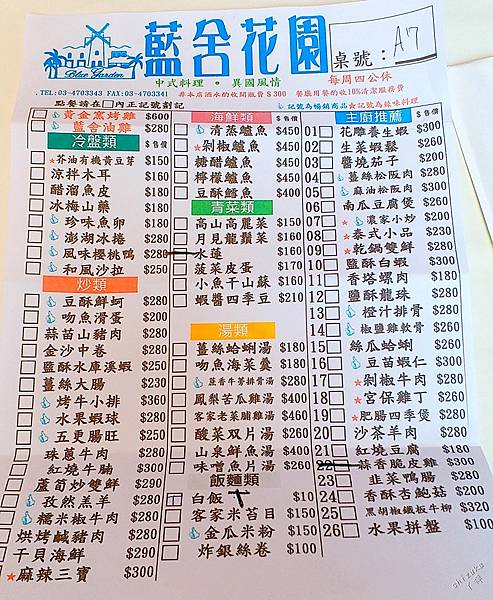 藍舍花園
Blue Garden
桌號：A7
中式料理 • 異國風情
每周四公休
TEL:03-4703343 FAX:03-4703341
非本店酒水酌收開瓶費$300
餐廳用餐酌收10%清潔服務費
點餐請在□內正記號劃記
記號為暢銷商品 ★記號為辣味料理
黃金窯烤雞 $600
藍舍油雞 $280
冷盤類 $售價
★芥油有機黃豆芽 $150
涼拌木耳 $160
醋溜魚皮 $180
冰梅山藥 $180
珍味魚卵 $180
澎湖冰捲 $280
風味櫻桃鴨 $280
和風沙拉 $250
炒類
豆酥鮮蚵 $280
吻魚滑蛋 $200
蒜苗山豬肉 $280
金沙中卷 $280
鹽酥水庫溪蝦 $250
薑絲大腸 $230
烤牛小排 $360
水果蝦球 $280
五更腸旺 $250
珠蔥牛肉 $280
紅燒牛腩 $300
蘆筍炒雙鮮 $280
孜然羔羊 $280
糯米椒牛肉 $280
烘烤鹹豬肉 $280
干貝海鮮 $290
★麻辣三寶 $300
海鮮類 $售價
清蒸鱸魚 $450
★剁椒鱸魚 $450
糖醋鱸魚 $450
檸檬鱸魚 $450
豆酥鱈魚 $400
青菜類
高山高麗菜 $150
月見龍鬚菜 $160
水蓮 $160
菠菜皮蛋 $170
小魚干山蘇 $160
蝦醬四季豆 $210
湯類
薑絲蛤蜊湯 $180
吻魚海菜羹 $180
蓮香牛蒡排骨湯 $280
鳳梨苦瓜雞湯 $450
客家老菜脯雞湯 $460
酸菜双片湯 $260
山泉鮮魚湯 $450
味噌魚片湯 $260
飯麵類
白飯 $10
客家米苔目 $150
金瓜米粉 $150
炸銀絲卷 $100
主廚推薦 $售價
01 花雕養生蝦 $300
02 生菜蝦鬆 $280
03 醬燒茄子 $220
04 薑絲松阪肉 $280
05 麻油松阪肉 $300
06 南瓜豆腐煲 $260
07 ★濃家小炒 $200
08 ★泰式小品 $230
09 ★乾鍋雙鮮 $380
10 鹽酥白蝦 $300
11 香塔螺肉 $180
12 鹽酥龍珠 $280
13 橙汁排骨 $280
14 椒鹽雞軟骨 $250
15 絲瓜蛤蜊 $260
16 豆苗蝦仁 $300
17 ★剁椒牛肉 $280
18 ★宮保雞丁 $260
19 ★肥腸四季煲 $280
20 沙茶羊肉 $280
21 紅燒豆腐 $180
22 蒜香脆皮雞 $300
23 韭菜鴨腸 $280
24 香酥杏鮑菇 $200
25 黑胡椒鐵板牛柳 $320
26 水果拼盤 $100